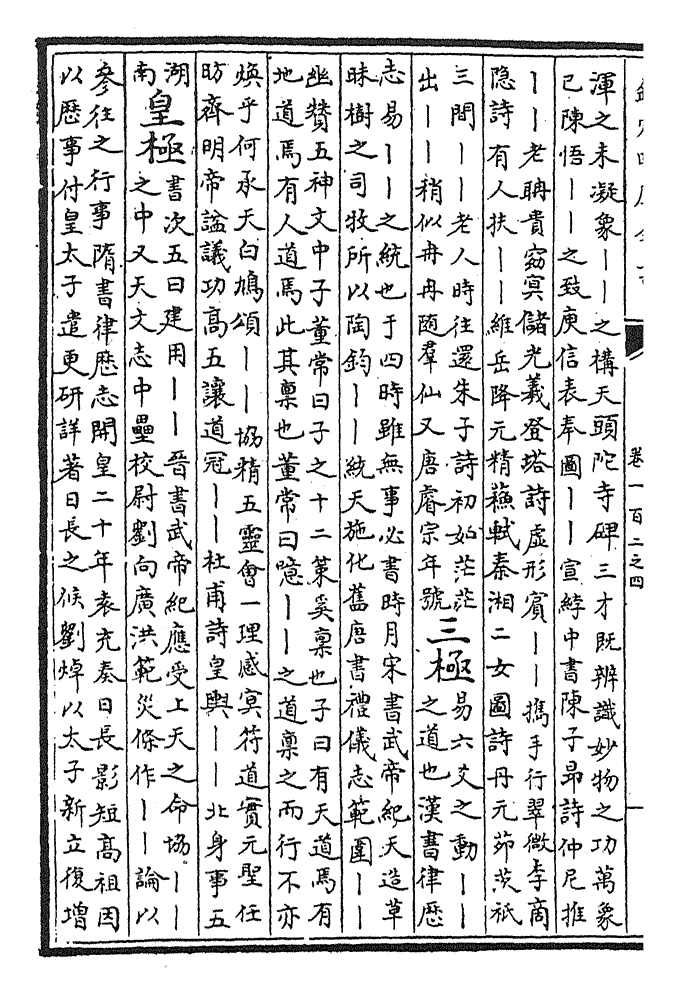 卷一百二之四
渾之未凝象——之構天頭陀寺碑三才既辨識妙物之功萬象
已陳悟——之致庾信表奉圖——宣綍中書陳子昂詩仲尼推
——老聃貴窈冥儲光羲登塔詩虛形賓——擕手行翠微李商
隱詩有人扶——維岳降元精蘓軾秦湘二女圖詩丹元茆茨祇
三間——老人時往還朱子詩初始茫茫
出——稍似冉冉随羣仙又唐睿宗年號
三極
易六爻之動——
之道也漢書律歷
志易——之統也于四時雖無事必書時月宋書武帝紀天造草
昧樹之司牧所以陶鈞——統天施化舊唐書禮儀志範圍——
幽贊五神文中子董常曰子之十二策奚禀也子曰有天道焉有
地道焉有人道焉此其禀也董常曰噫——之道禀之而行不亦
煥乎何承天白鳩頌——協精五靈會一理感冥符道實元聖任
昉齊明帝諡議功高五讓道冠——杜甫詩皇輿——北身事五
湖
南
皇極
書次五曰建用——晉書武帝紀應受上天之命協——
之中又天文志中壘校尉劉向廣洪範災條作——論以
參往之行事隋書律歷志開皇二十年袁充奏日長影短高祖因
以歷事付皇太子遣更研詳著日長之候劉焯以太子新立復增